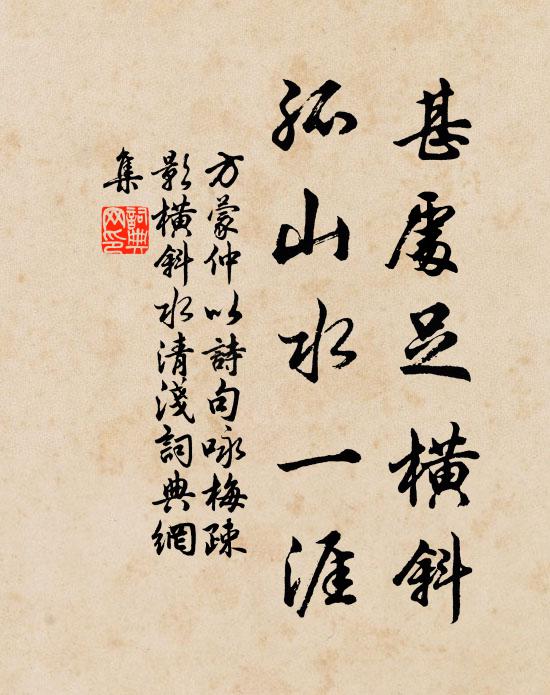 甚處足橫斜
孤山水一涯
方蒙仲以詩句咏梅疎
影橫斜水清淺詞典網
集
詞典網印